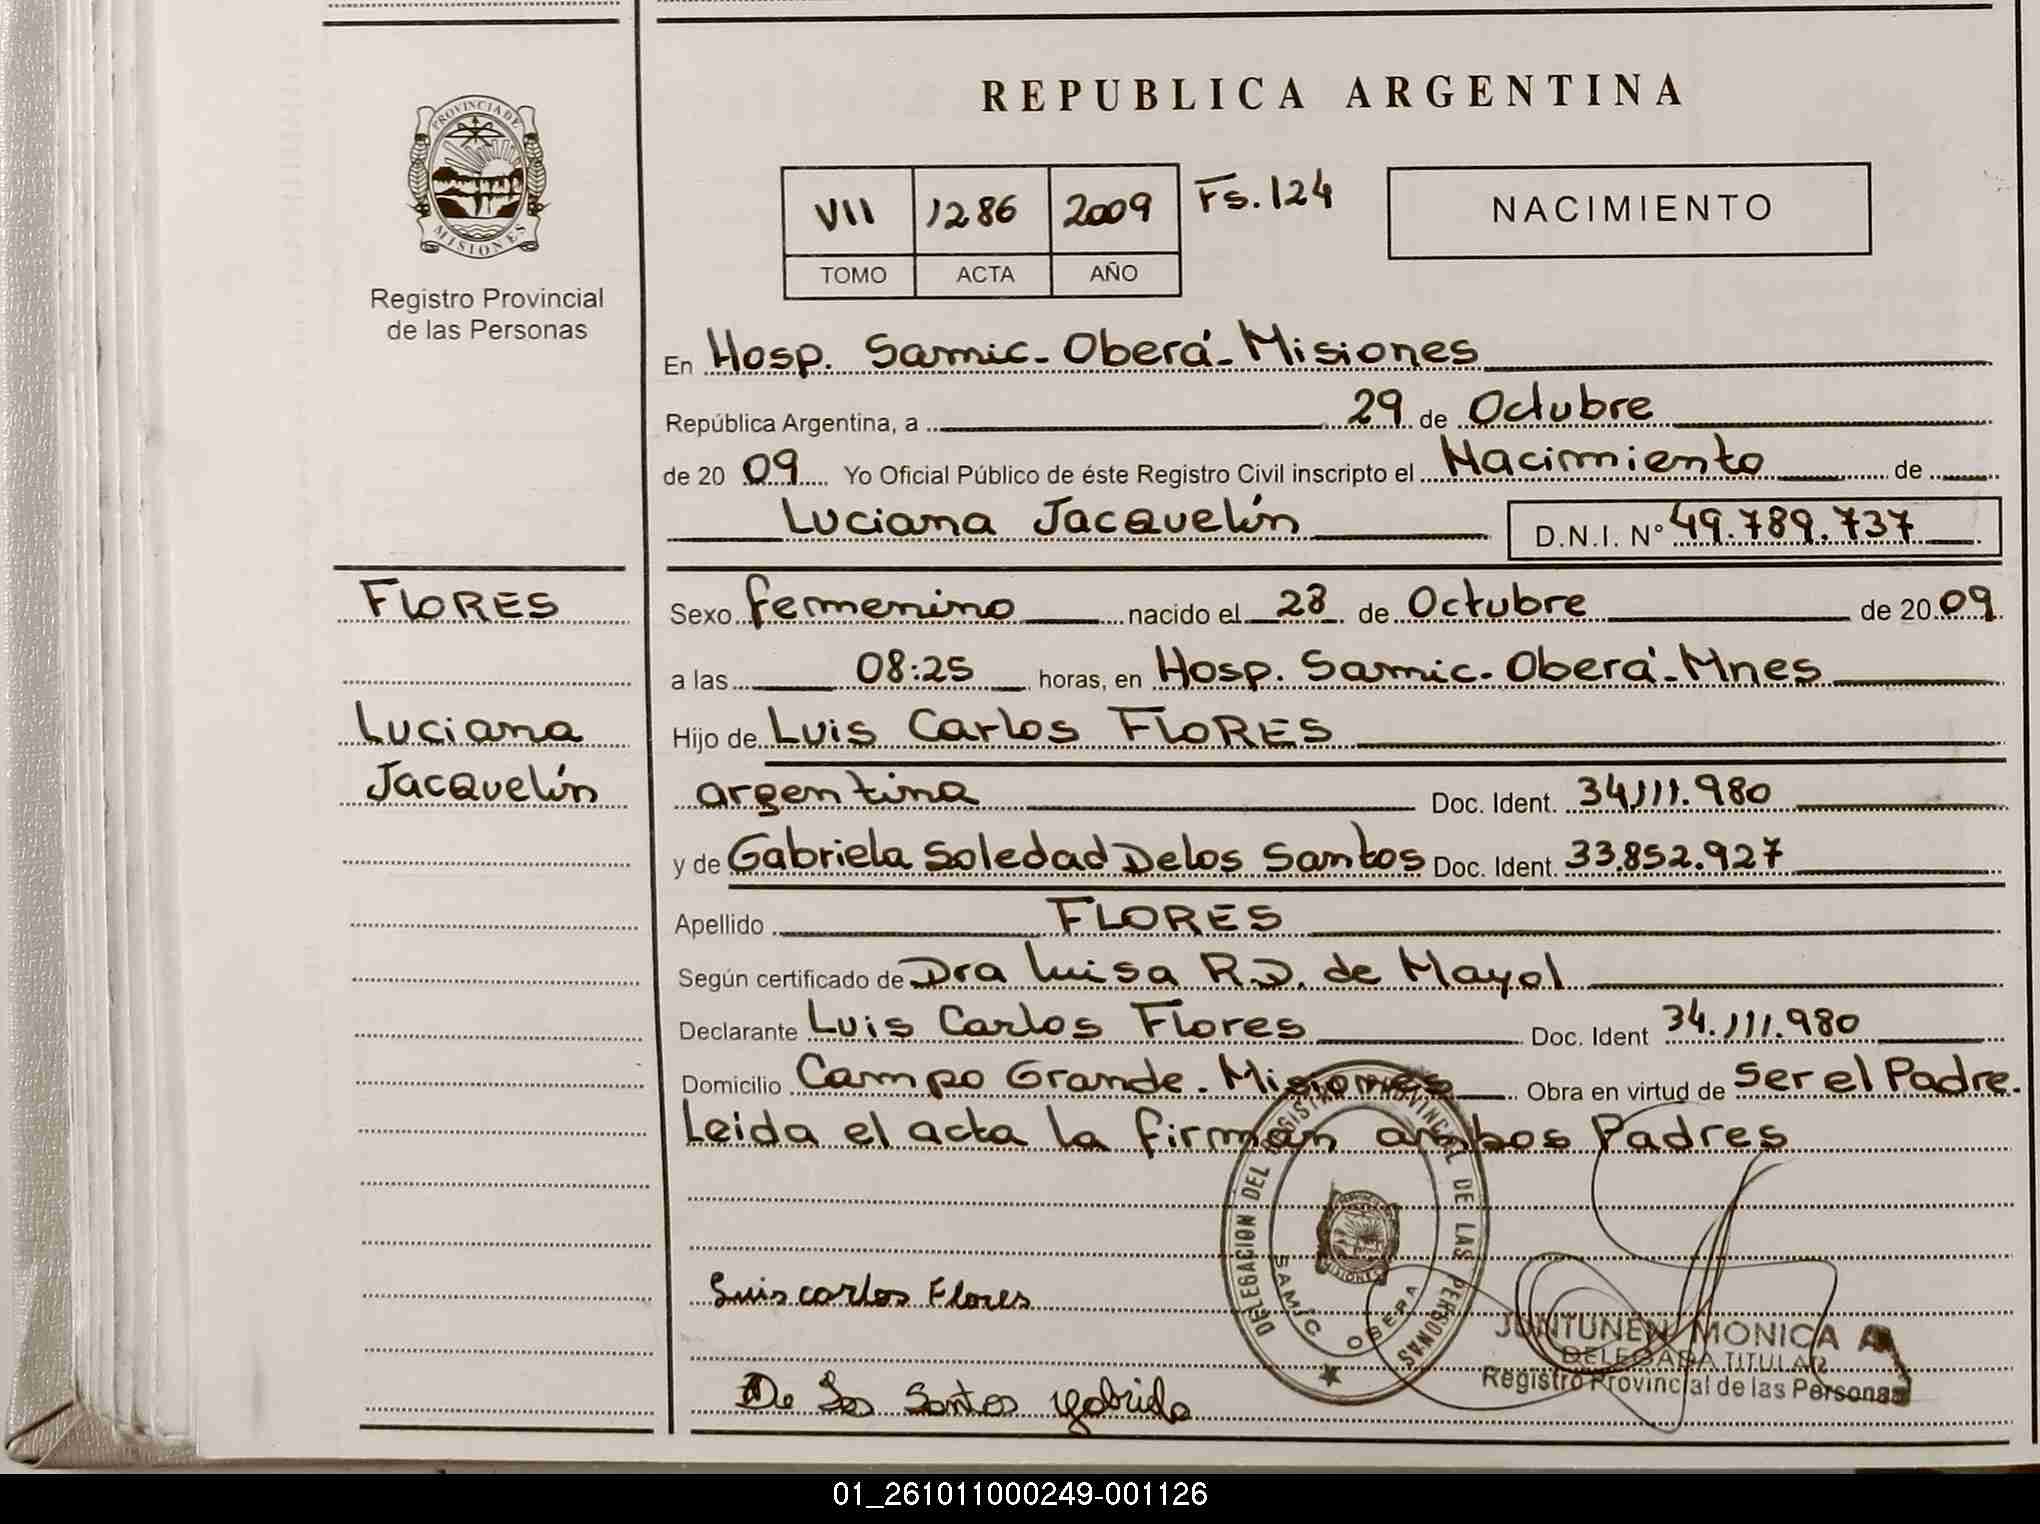 REPUBLICA ARGENTINA
PROVINCIA DE
MISIONES
Registro Provincial
de las Personas
VII 1286 2009 Fs. 124
TOMO ACTA AÑO
NACIMIENTO
En Hosp. Samic - Oberá - Misiones
República Argentina, a 29 de Octubre
de 20 09 Yo Oficial Público de éste Registro Civil inscripto el Nacimiento de
Luciana Jacquelín D.N.I. N° 49.789.737
FLORES
Luciana
Jacquelín
Sexo femenino nacido el 28 de Octubre de 20 09
a las 08:25 horas, en Hosp. Samic - Oberá - Mnes
Hijo de Luis Carlos FLORES
argentina Doc. Ident. 34.111.980
y de Gabriela Soledad De los Santos Doc. Ident. 33.852.927
Apellido FLORES
Según certificado de Dra Luisa R.D. de Mayol
Declarante Luis Carlos Flores Doc. Ident 34.111.980
Domicilio Campo Grande - Misiones Obra en virtud de Ser el Padre.
Leida el acta la firman ambos Padres
DELEGACION DEL REGISTRO PROVINCIAL DE LAS PERSONAS
SAMIC OBERA
MISIONES
Luis carlos Flores
De Los Santos Gabriela
JUNTUNEN MONICA A
DELEGADA TITULAR
Registro Provincial de las Personas
01_261011000249-001126